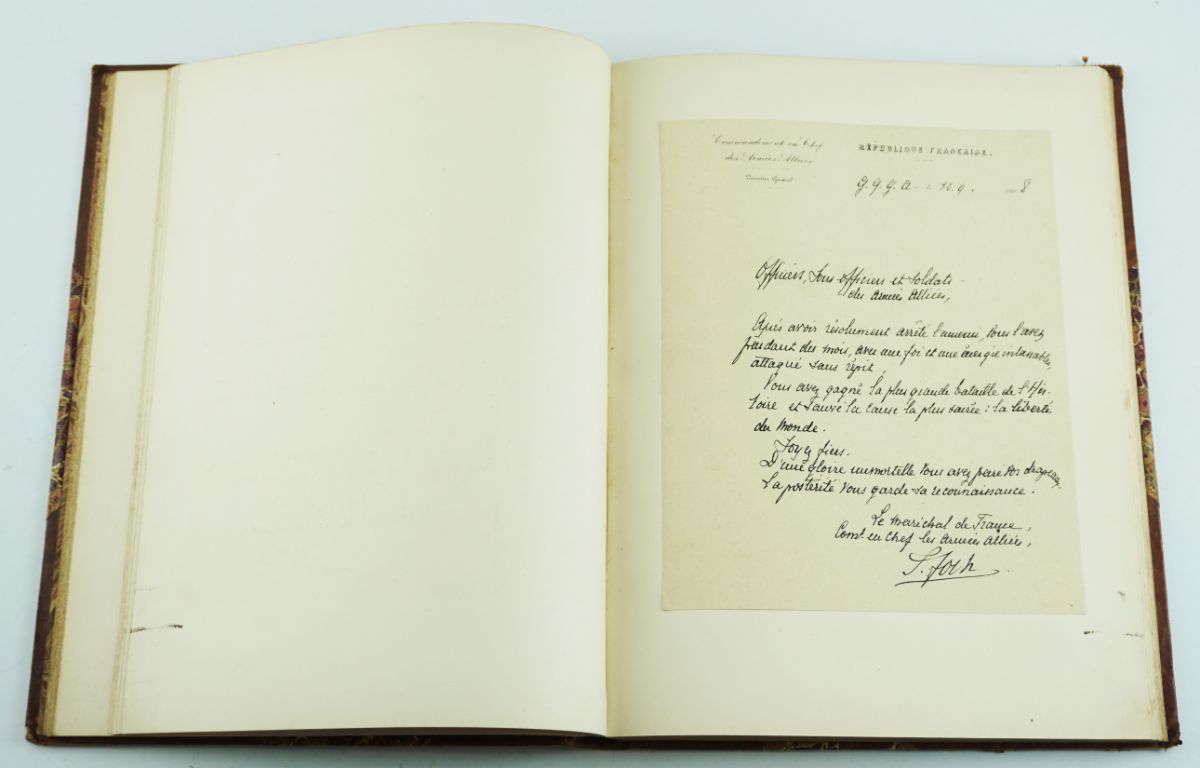 Commandement en Chef
des Armées Alliées
Quartier Général
RÉPUBLIQUE FRANÇAISE.
G.Q.G.A
8
Officiers, Sous-officiers et Soldats
des Armées Alliées,
Après avoir résolument arrêté l'ennemi, vous l'avez
pendant des mois, avec une foi et une énergie inlassables,
attaqué sans répit.
Vous avez gagné la plus grande bataille de l'His-
toire et sauvé la cause la plus sacrée : la liberté
du Monde.
Soyez fiers.
D'une gloire immortelle vous avez paré vos drapeaux.
La postérité vous garde sa reconnaissance.
Le Maréchal de France,
Comt en Chef les Armées Alliées,
F. Foch